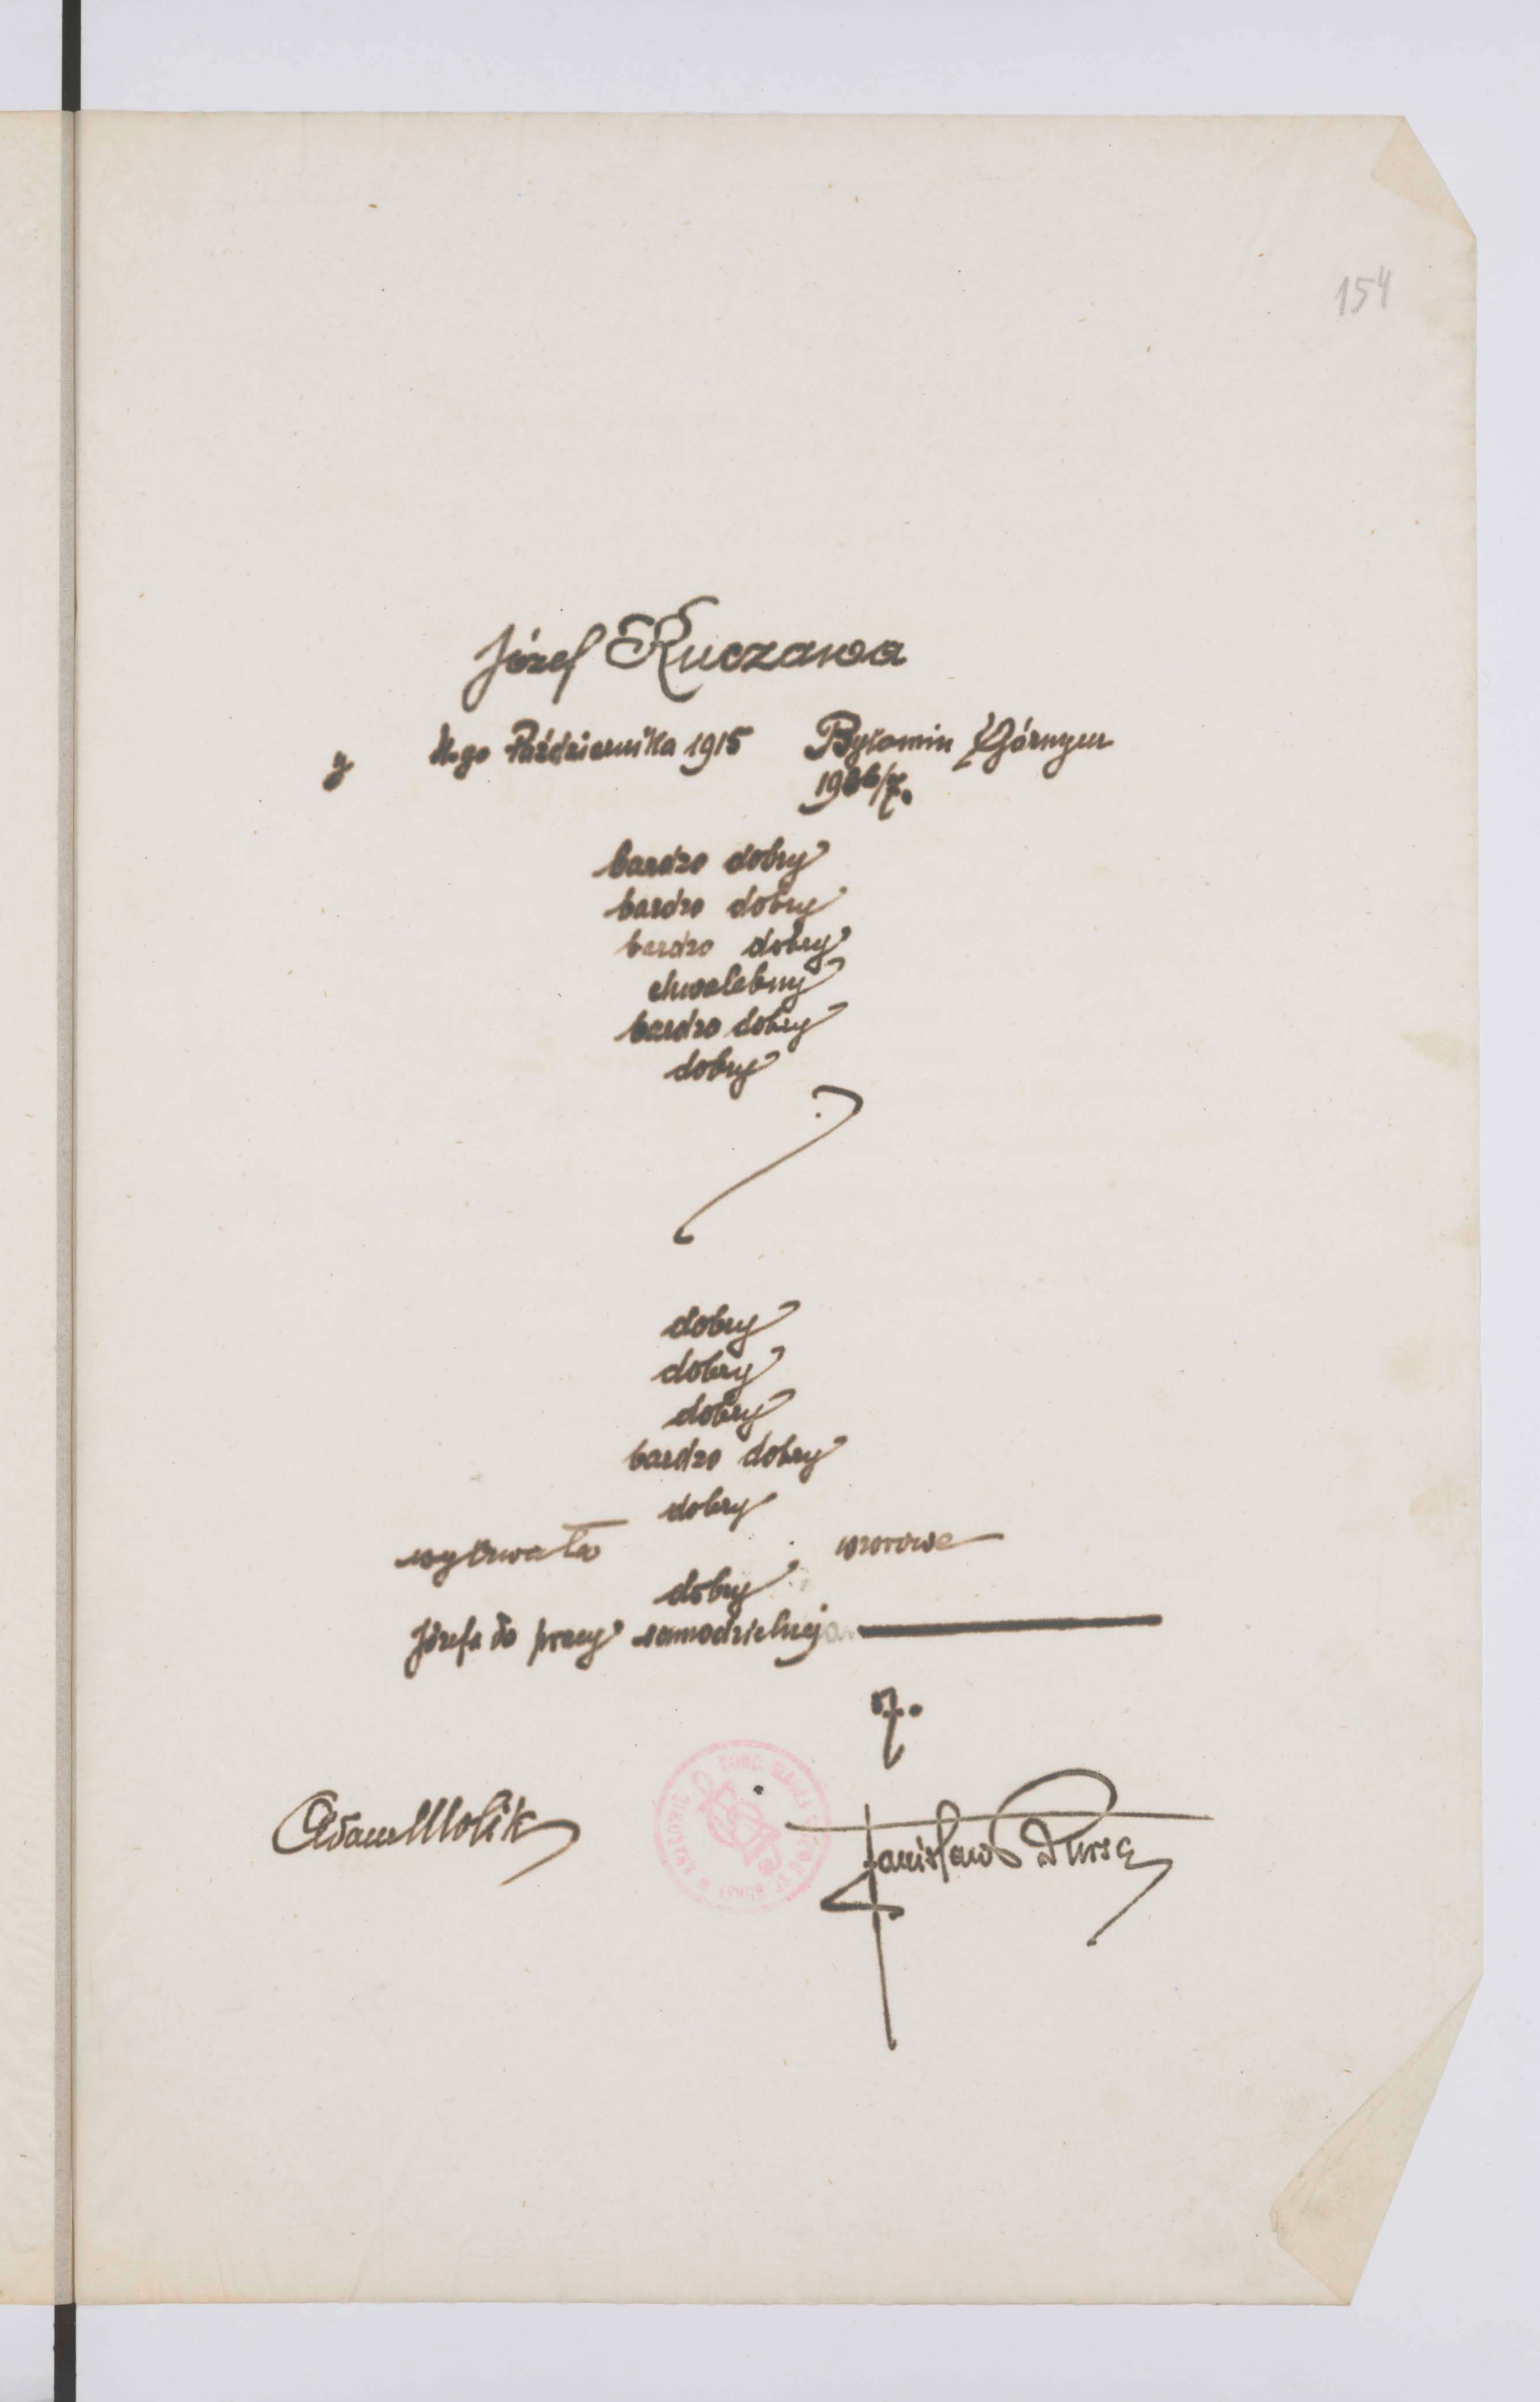 154
Józef Kuczawa
y 11.go Października 1915 Bytomin Górnym
1936/7.
bardzo dobry
bardzo dobry
bardzo dobry
chwalebny
bardzo dobry
dobry
dobry
dobry
dobry
bardzo dobry
dobry
wytrwała wzorowe
dobry
Józefa do pracy samodzielnej
7.
Adam Molik
Stanisław Dursa